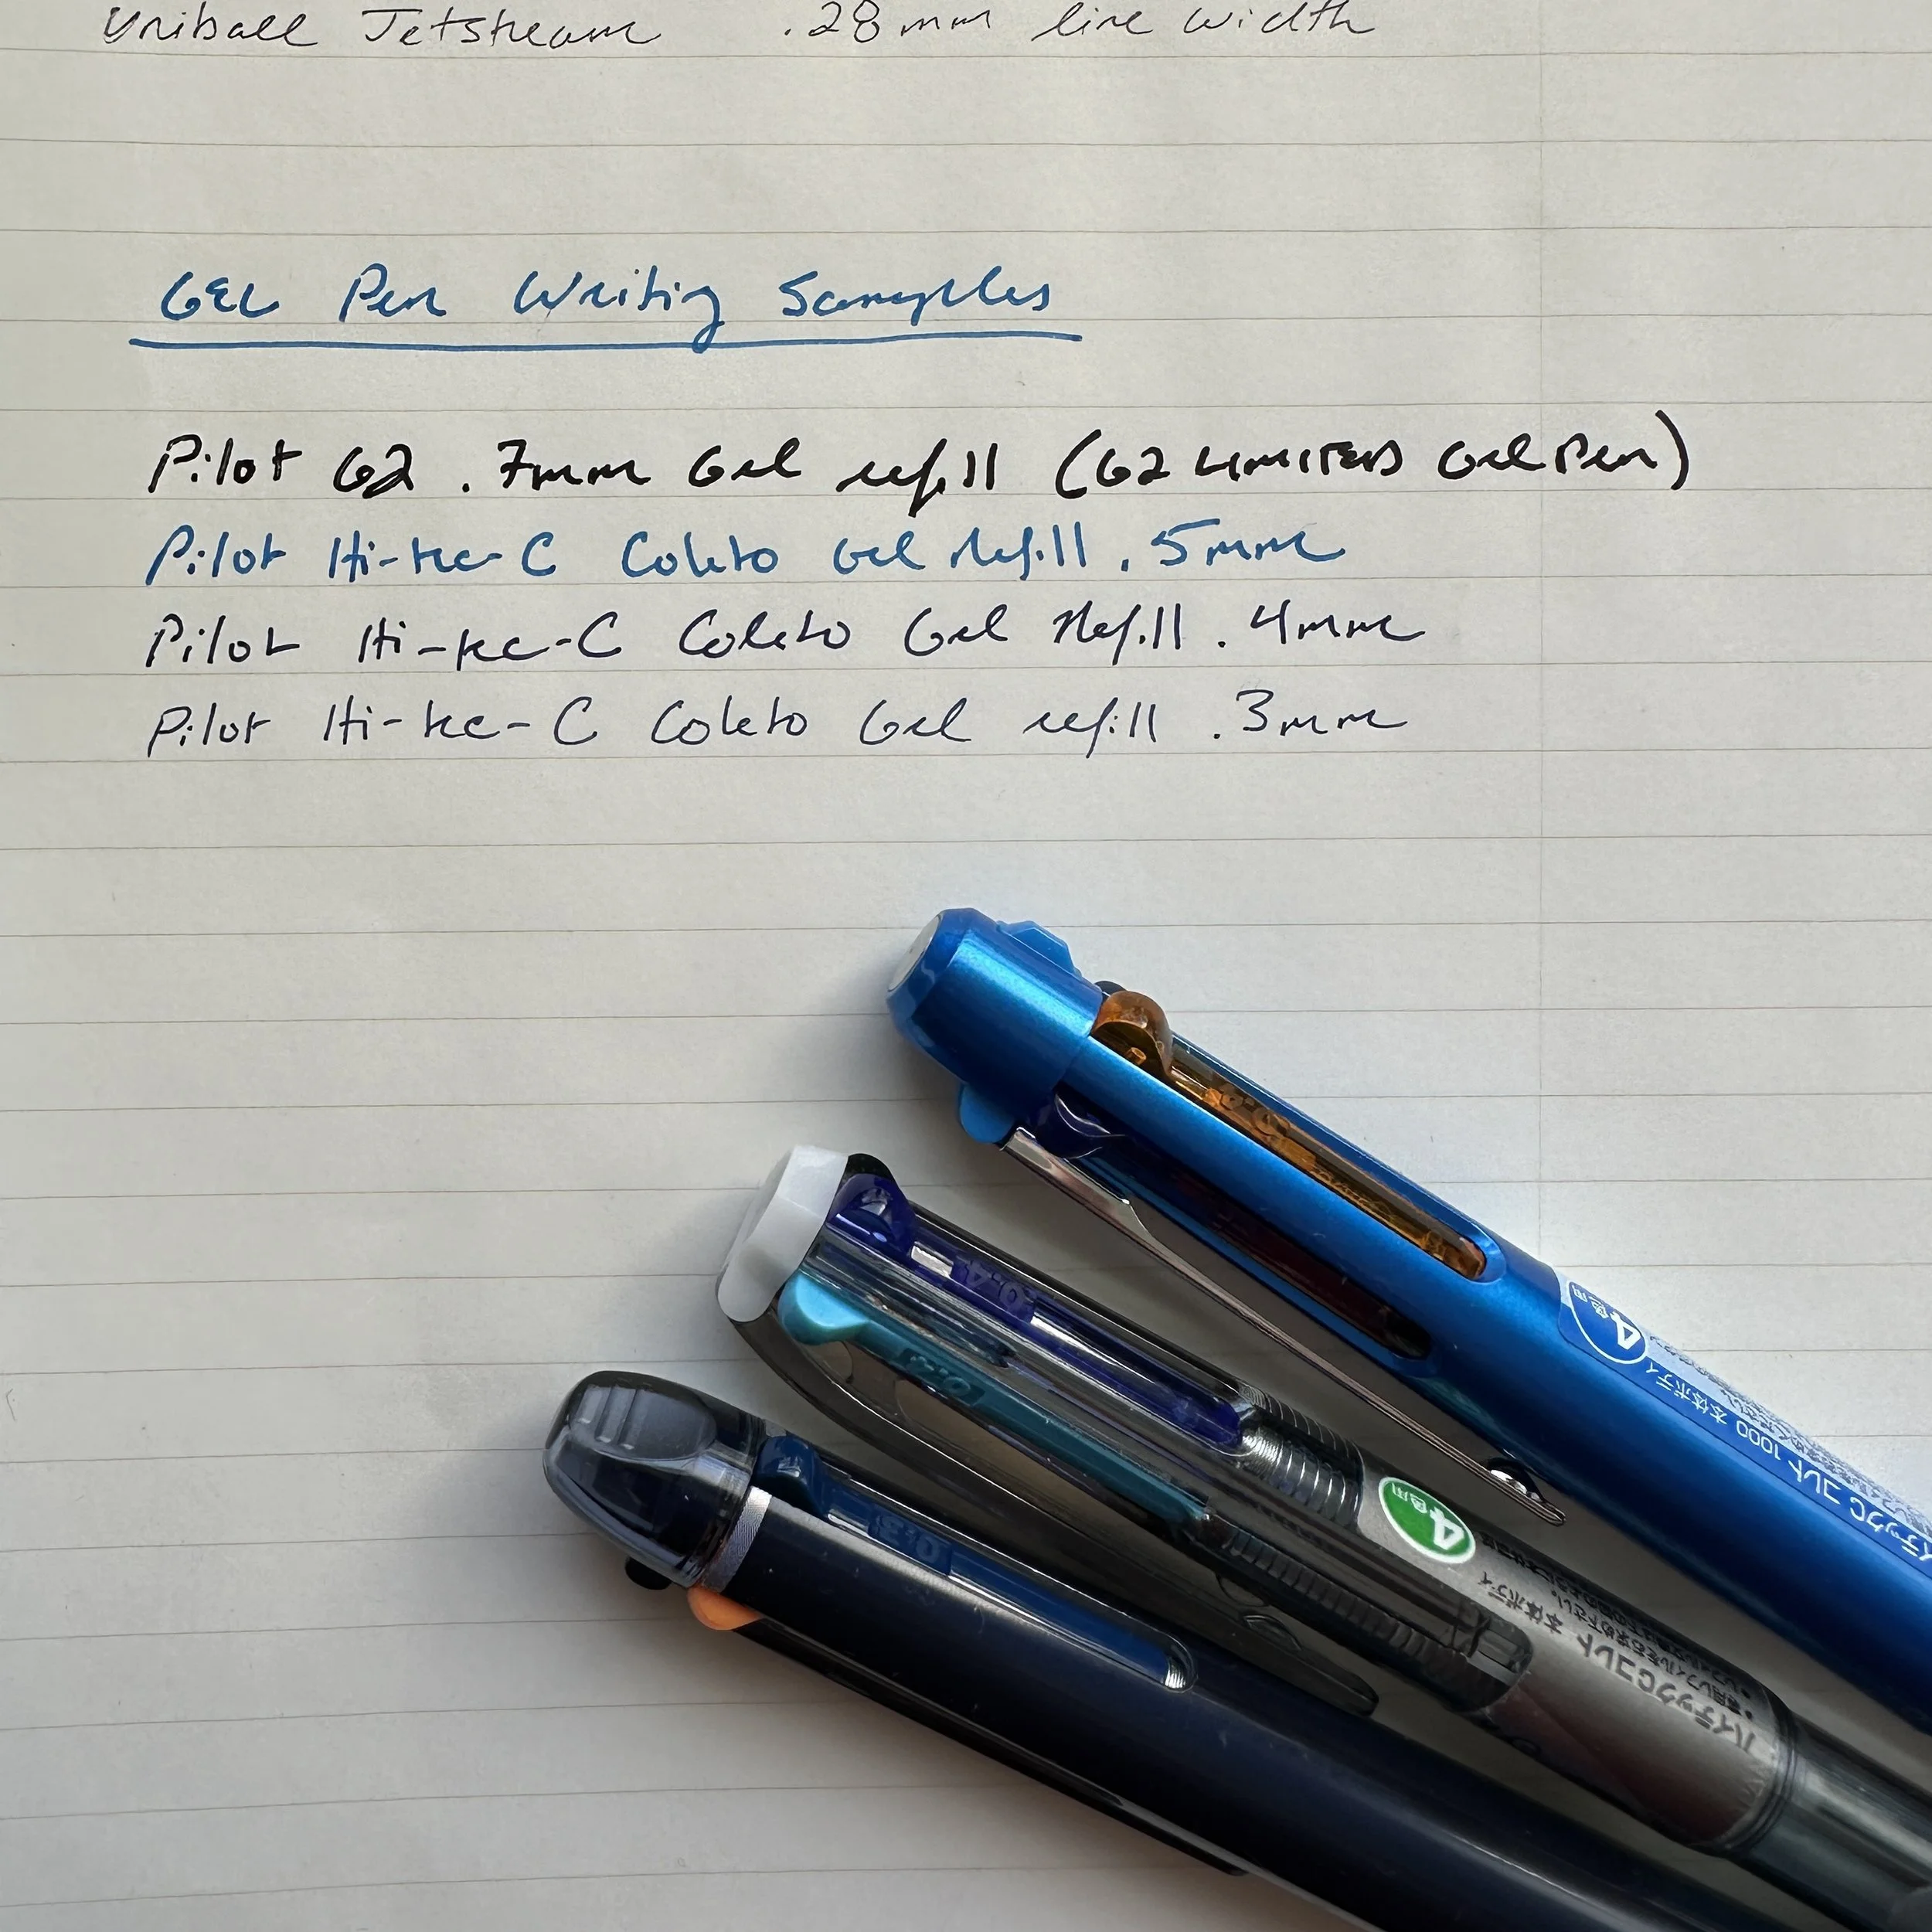 Uniball Jetstream .28mm line width
Gel Pen Writing Samples
Pilot G2 .7mm Gel refill (G2 LIMITED Gel Pen)
Pilot Hi-tec-C Coleto Gel Refill .5mm
Pilot Hi-tec-C Coleto Gel Refill .4mm
Pilot Hi-tec-C Coleto Gel refill .3mm
4色用
ハイテックC コレト 1000 本体ボディ
0.4
0.4
4色用
ハイテックCコレト 本体ボディ
0.3